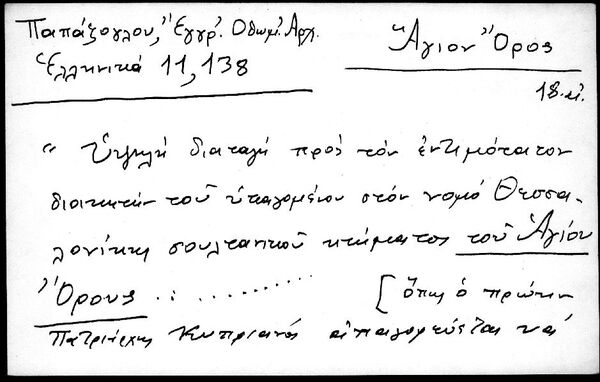 Παπάζογλου, Ἔγγρ. Ὀθωμ. Ἀρχ.
Ἑλληνικά 11, 138
Ἅγιον Ὄρος
18 αἰ.
“ Ὑψηλή διαταγή πρός τόν ἐντιμότατον
διοικητήν τοῦ ὑπαγομένου στόν νομό Θεσσα-
λονίκης σουλτανικοῦ κτήματος τοῦ Ἁγίου
Ὄρους . . . . . . . . . . [ὅπως ὁ πρώην
Πατριάρχης Κυπριανός ἀπαγορεύεται νά